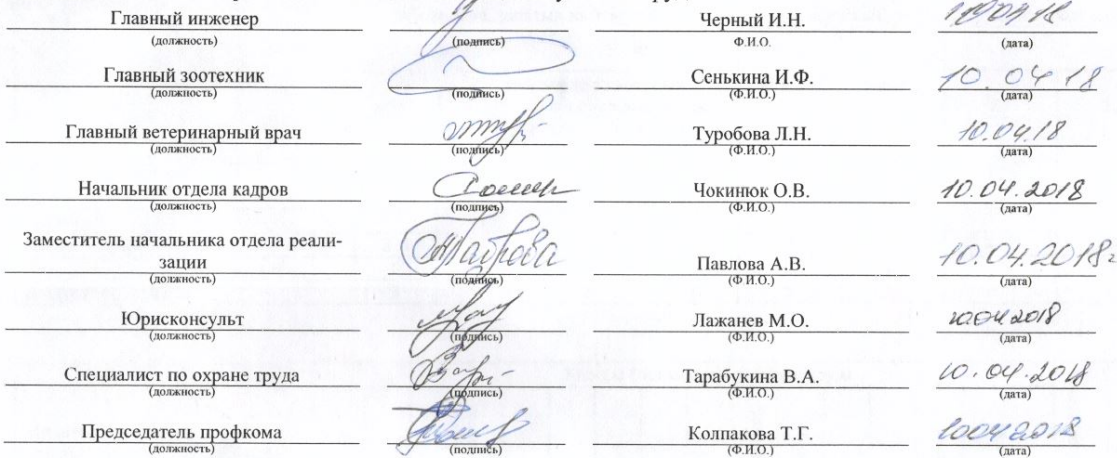 Главный инженер Черный И.Н. 10.04.18
(должность) (подпись) Ф.И.О. (дата)
Главный зоотехник Сенькина И.Ф. 10.04.18
(должность) (подпись) (Ф.И.О.) (дата)
Главный ветеринарный врач Туробова Л.Н. 10.04.18
(должность) (подпись) (Ф.И.О.) (дата)
Начальник отдела кадров Чокинюк О.В. 10.04.2018
(должность) (подпись) (Ф.И.О.) (дата)
Заместитель начальника отдела реали-
зации Павлова А.В. 10.04.2018г
(должность) (подпись) (Ф.И.О.) (дата)
Юрисконсульт Лажанев М.О. 10.04.2018
(должность) (подпись) (Ф.И.О.) (дата)
Специалист по охране труда Тарабукина В.А. 10.04.2018
(должность) (подпись) (Ф.И.О.) (дата)
Председатель профкома Колпакова Т.Г. 10042018
(должность) (подпись) (Ф.И.О.) (дата)